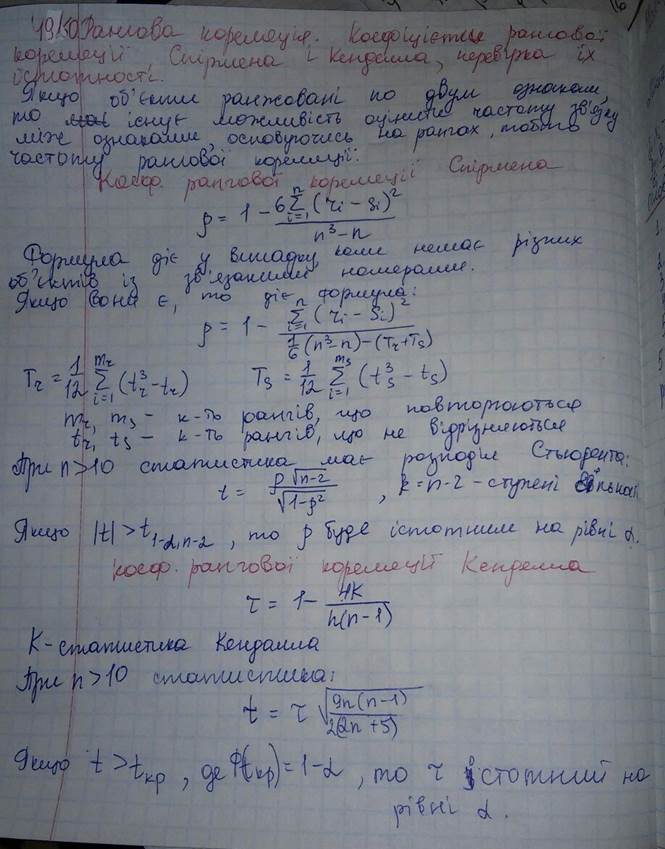 49/50 Рангова кореляція. Коефіцієнти рангової
кореляції Спірмена і Кендалла, перевірка їх
істотності.
Якщо об'єкти ранжовані по двум ознакам,
то існує можливість оцінити частоту зв'язку
між ознаками, основуючись на рангах, тобто
частоту рангової кореляції.
Коеф. рангової кореляції Спірмена
ρ = 1 - 6∑ᵢ₌₁ⁿ(rᵢ - sᵢ)² / (n³ - n)
Формула діє у випадку коли немає різних
об'єктів із зв'язаними номерами.
Якщо вони є, то діє формула:
ρ = 1 - ∑ᵢ₌₁ⁿ(rᵢ - sᵢ)² / (1/6 (n³ - n) - (Tr + Ts))
Tr = 1/12 ∑ᵢ₌₁^mr (tr³ - tr) Ts = 1/12 ∑ᵢ₌₁^ms (ts³ - ts)
mr, ms - к-ть рангів, що повторюються
tr, ts - к-ть рангів, що не відрізняються
При n>10 статистика має розподіл Стьюдента:
t = ρ√(n-2) / √(1-ρ²) , k = n-2 - ступені вільності
Якщо |t| > t1-α,n-2 , то ρ буде істотним на рівні α.
коеф. рангової кореляції Кендалла
τ = 1 - 4K / n(n-1)
K - статистика Кендалла
При n>10 статистика:
t = τ √(9n(n-1) / 2(2n+5))
Якщо t > tкр , де Ф(tкр) = 1-α , то τ істотний на
рівні α.